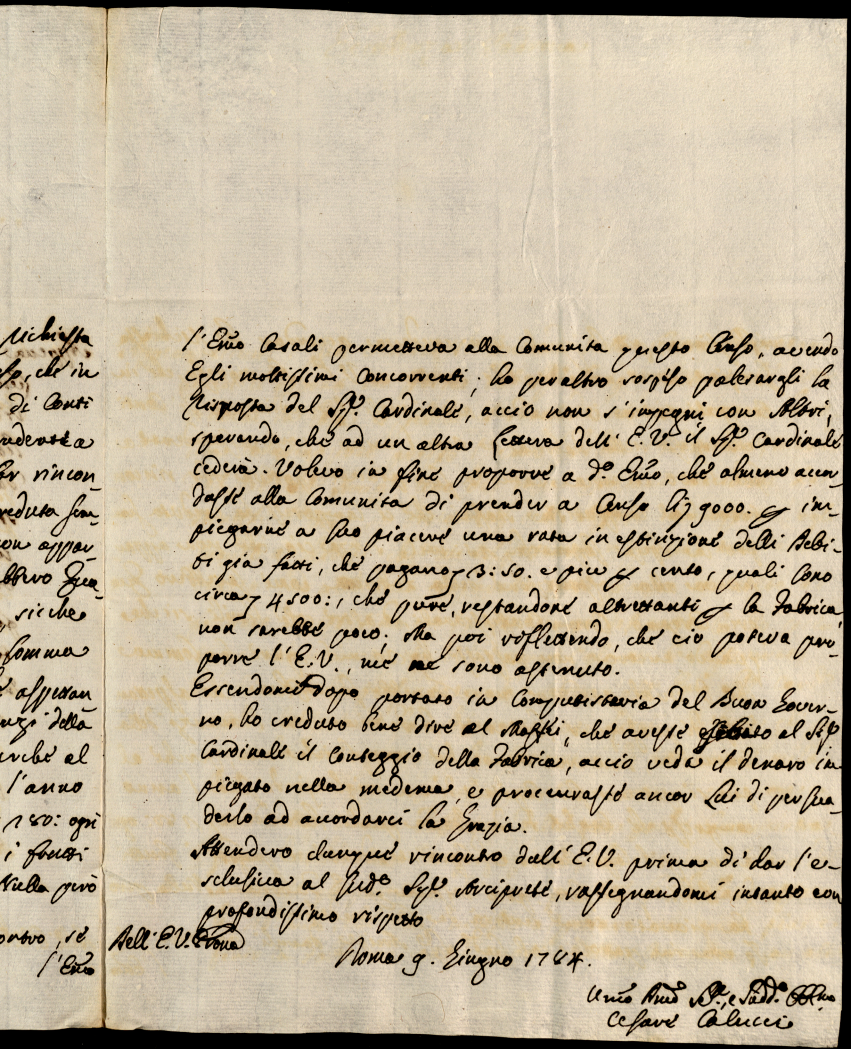 richiesta
so, che in
di Conti
ndente a
rincon-
creduta sem-
on appar-
bbero Qua-
, sicche
somma
e aspettan
nzi della
arche al
l'anno
180: ogni
i frutti
Nulla però
, se
l'Emo
l'Emo Casali permetteva alla Comunita questo Censo, avendo
Egli moltissimi Concorrenti; ho peraltro sospeso palesargli la
Risposta del Sigr. Cardinale, accio non s'impegni con Altri,
sperando, che ad un altra Lettera dell'E.V. il Sigr. Cardinale
cederà. Volevo in fine proporre a do. Emo, che almeno accor-
dasse alla Comunita di prender a Censo 9000. im-
piegarne a suo piacere una rata in estinzione delli Debi-
ti gia fatti, che pagano 3:50. e piu cento, quali sono
circa 4500:, che pure, restandone altrettanti la Fabrica
non sarebbe poco; Ma poi riflettendo, che cio poteva pro-
porre l'E.V., me ne sono astenuto.
Essendomi dopo portato in Computistaria del Buon Gover-
no, ho creduto bene dire al Massi, che avesse al Sigr
Cardinale il Conteggio della Fabrica, accio veda il denaro im
piegato nella medema, e procurasse ancor Lui di persua-
derlo ad accordarci la Grazia.
Attendero dunque rincontro dall'E.V. prima di dar l'e-
sclusiva al sudo. Sigr. Arciprete, rassegnandomi intanto con
profondissimo rispetto
Dell'E.V.
Roma 9. Giugno 1784.
Umo Servo
Cesare Calucci